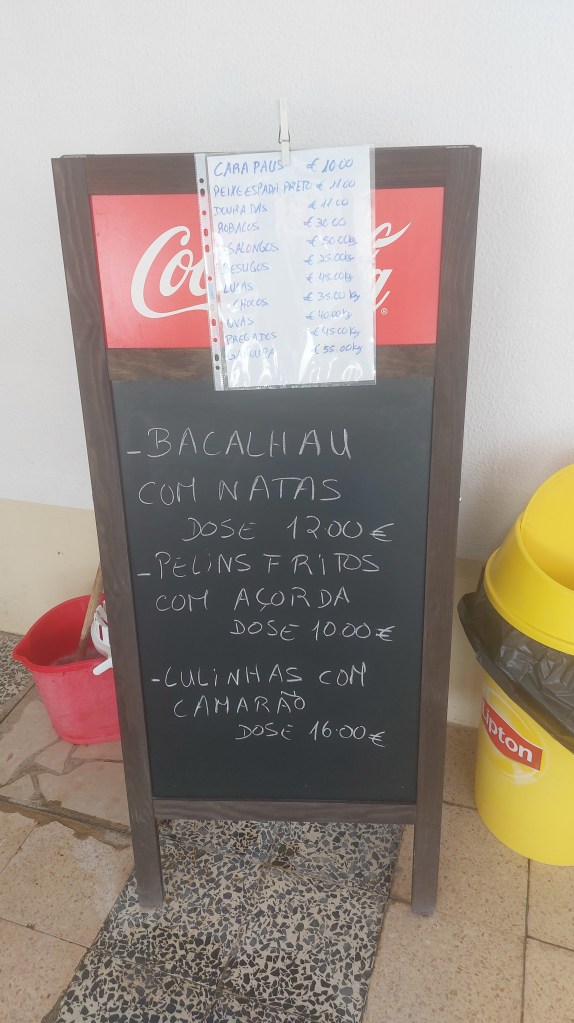 CARAPAUS € 10.00
PEIXE ESPADA PRETO € 11.00
DOURADAS € 11.00
ROBALOS € 30.00
SALONGOS € 50.00kg
BESUGOS € 25.00kg
LULAS € 45.00kg
CHOCOS € 35.00kg
€ 40.00kg
PREGADOS € 45.00kg
GAROUPA € 55.00kg
Coca
- BACALHAU
COM NATAS
DOSE 12.00 €
- PELINS FRITOS
COM AÇORDA
DOSE 10.00 €
- LULINHAS COM
CAMARÃO
DOSE 16.00 €
Lipton